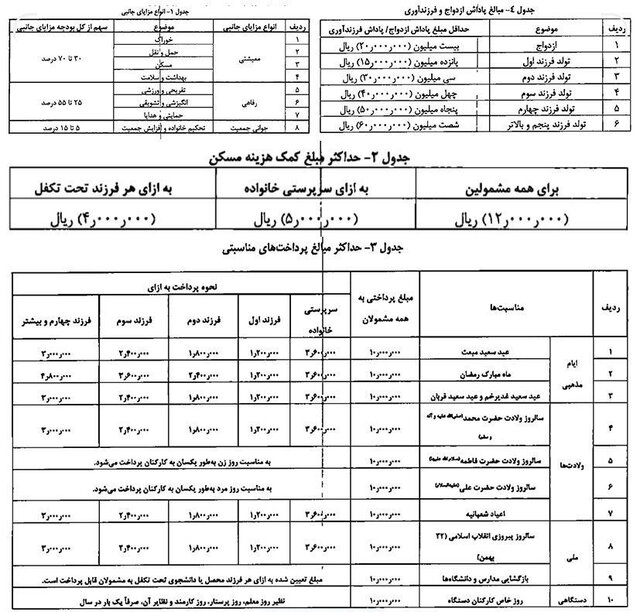 جدول ۴- مبالغ پاداش ازدواج و فرزندآوری
ردیف موضوع حداقل مبلغ پاداش ازدواج/ پاداش فرزندآوری
۱ ازدواج بیست میلیون (۲۰٫۰۰۰٫۰۰۰) ریال
۲ تولد فرزند اول پانزده میلیون (۱۵٫۰۰۰٫۰۰۰) ریال
۳ تولد فرزند دوم سی میلیون (۳۰٫۰۰۰٫۰۰۰) ریال
۴ تولد فرزند سوم چهل میلیون (۴۰٫۰۰۰٫۰۰۰) ریال
۵ تولد فرزند چهارم پنجاه میلیون (۵۰٫۰۰۰٫۰۰۰) ریال
۶ تولد فرزند پنجم و بالاتر شصت میلیون (۶۰٫۰۰۰٫۰۰۰) ریال
جدول ۱- انواع مزایای جانبی
ردیف موضوع انواع مزایای جانبی سهم از کل بودجه مزایای جانبی
۱ خوراک
۲ حمل و نقل معیشتی ۳۰ تا ۷۰ درصد
۳ مسکن
۴ بهداشت و سلامت
۵ تفریحی و ورزشی
۶ انگیزشی و تشویقی رفاهی ۲۵ تا ۵۵ درصد
۷ حمایتی و هدایا
۸ تحکیم خانواده و افزایش جمعیت جوانی جمعیت ۵ تا ۱۵ درصد
جدول ۲- حداکثر مبلغ کمک هزینه مسکن
برای همه مشمولین به ازای سرپرستی خانواده به ازای هر فرزند تحت تکفل
(۱۲٫۰۰۰٫۰۰۰) ریال (۵٫۰۰۰٫۰۰۰) ریال (۴٫۰۰۰٫۰۰۰) ریال
جدول ۳- حداکثر مبالغ پرداخت‌های مناسبتی
ردیف مناسبت‌ها مبلغ پرداختی به همه مشمولان نحوه پرداخت به ازای
سرپرستی خانواده فرزند اول فرزند دوم فرزند سوم فرزند چهارم و بیشتر
ایام مذهبی
۱ عید سعید مبعث ۱۰٫۰۰۰٫۰۰۰ ۳٫۶۰۰٫۰۰۰ ۱٫۲۰۰٫۰۰۰ ۱٫۸۰۰٫۰۰۰ ۲٫۴۰۰٫۰۰۰ ۳٫۰۰۰٫۰۰۰
۲ ماه مبارک رمضان ۱۰٫۰۰۰٫۰۰۰ ۳٫۶۰۰٫۰۰۰ ۱٫۲۰۰٫۰۰۰ ۲٫۴۰۰٫۰۰۰ ۳٫۶۰۰٫۰۰۰ ۴٫۸۰۰٫۰۰۰
۳ عید سعید غدیرخم و عید سعید قربان ۱۰٫۰۰۰٫۰۰۰ ۳٫۶۰۰٫۰۰۰ ۱٫۲۰۰٫۰۰۰ ۱٫۸۰۰٫۰۰۰ ۲٫۴۰۰٫۰۰۰ ۳٫۰۰۰٫۰۰۰
ولادت‌ها
۴ سالروز ولادت حضرت محمد (صلی‌الله علیه و آله و سلم) ۱۰٫۰۰۰٫۰۰۰ ۳٫۶۰۰٫۰۰۰ ۱٫۲۰۰٫۰۰۰ ۱٫۸۰۰٫۰۰۰ ۲٫۴۰۰٫۰۰۰ ۳٫۰۰۰٫۰۰۰
۵ سالروز ولادت حضرت فاطمه ۱۰٫۰۰۰٫۰۰۰ به مناسبت روز زن به‌طور یکسان به کارکنان پرداخت می‌شود.
۶ سالروز ولادت حضرت علی (علیه‌السلام) ۱۰٫۰۰۰٫۰۰۰ به مناسبت روز مرد به‌طور یکسان به کارکنان پرداخت می‌شود.
۷ اعیاد شعبانیه ۱۰٫۰۰۰٫۰۰۰ ۳٫۶۰۰٫۰۰۰ ۱٫۲۰۰٫۰۰۰ ۱٫۸۰۰٫۰۰۰ ۲٫۴۰۰٫۰۰۰ ۳٫۰۰۰٫۰۰۰
ملی
۸ سالروز پیروزی انقلاب اسلامی (۲۲ بهمن) ۱۰٫۰۰۰٫۰۰۰ ۳٫۶۰۰٫۰۰۰ ۱٫۲۰۰٫۰۰۰ ۱٫۸۰۰٫۰۰۰ ۲٫۴۰۰٫۰۰۰ ۳٫۰۰۰٫۰۰۰
۹ بازگشایی مدارس و دانشگاه‌ها ۱۰٫۰۰۰٫۰۰۰ مبلغ تعیین شده به ازای هر فرزند محصل یا دانشجوی تحت تکفل به مشمولان قابل پرداخت است.
۱۰ دستگاهی روز خاص کارکنان دستگاه ۱۰٫۰۰۰٫۰۰۰ نظیر روز معلم، روز پرستار، روز کارمند و نظایر آن، صرفاً یک بار در سال